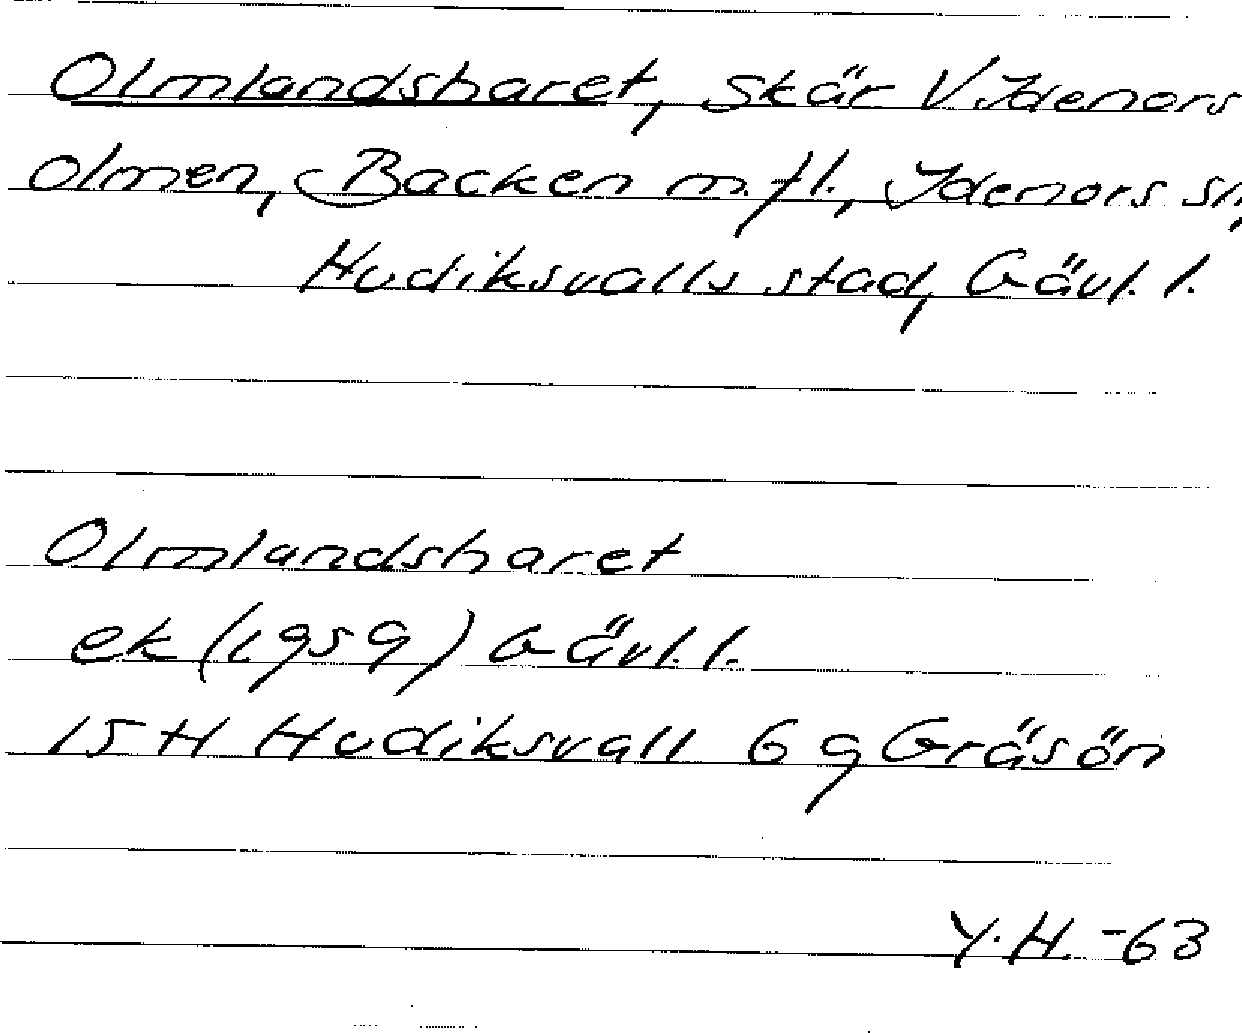 Olmlandsharet, skär V Idenors
Olmen, Backen m.fl., Idenors sn,
Hudiksvalls stad, Gävl. l.
Olmlandsharet
ek (1959) Gävl. l.
15 H Hudiksvall 6 g Gräsön
Y.H. -63